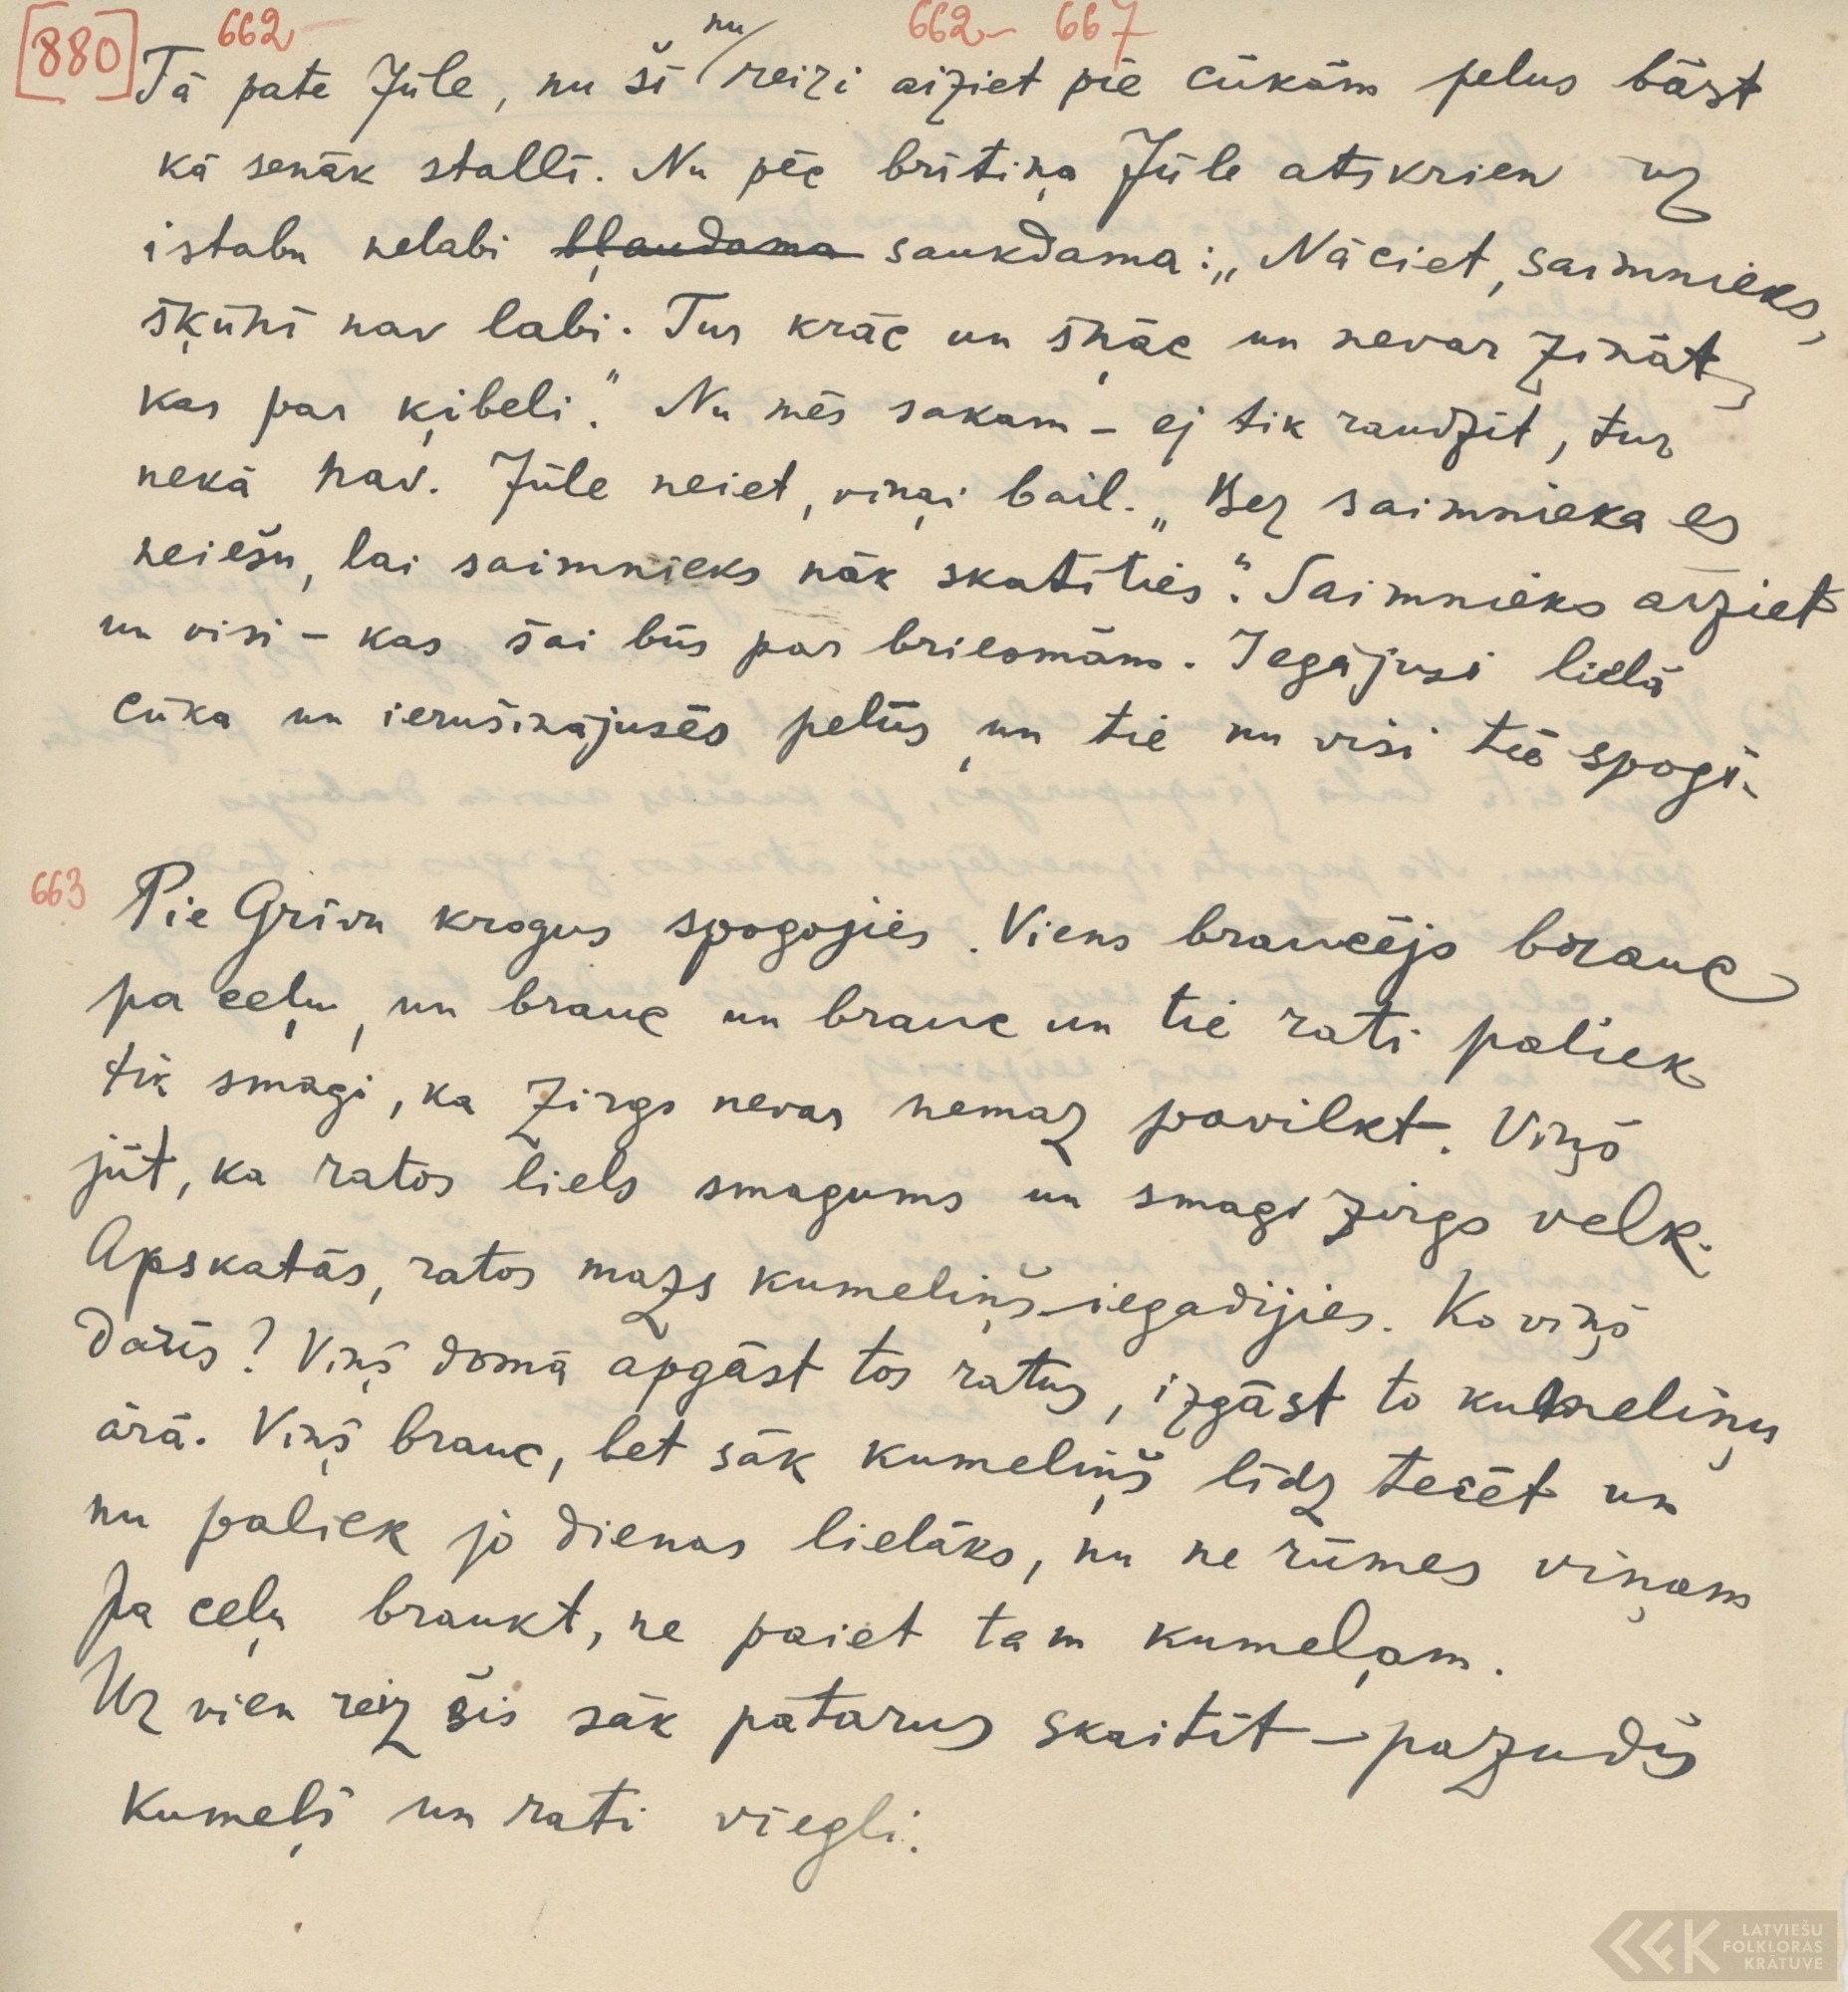 [880] 662 662 – 667
Tā pate Jūle, nu šī nu/ reizi aiziet pie cūkām pelus bāst
kā senāk stallī. Nu pēc brītiņa Jūle atskrien uz
istabu nelabi bļaudama saukdama: „Nāciet, saimnieks,
šķūnī nav labi. Tur krāc un šņāc un nevar zināt,
kas par ķibeli.” Nu mēs sakam – ej tik raudzīt, tur
nekā nav. Jūle neiet, viņai bail. „Bez saimnieka es
neiešu, lai saimnieks nāk skatīties”. Saimnieks aiziet
un visi – kas šai būs par briesmām. Iegājusi lielā
cūka un ierušinājusēs pelūs, un tie nu visi tie spogi.
663 Pie Grīvu krogus spogojies. Viens braucējs brauc
pa ceļu, un brauc un brauc un tie rati paliek
tik smagi, ka zirgs nevar nemaz pavilkt. Viņš
jūt, ka ratos liels smagums un smagi zirgs velk.
Apskatās, ratos mazs kumeliņš iegadījies. Ko viņš
darīs? Viņš domā apgāst tos ratus, izgāst to kumeliņu
ārā. Viņš brauc, bet sāk kumeliņš līdz tecēt un
nu paliek jo dienas lielāks, nu ne rūmes viņam
pa ceļu braukt, ne paiet tam kumeļam.
Uz vien reiz šis sāk pātarus skaitīt – pazudis
kumeļš un rati viegli.
LATVIEŠU
FOLKLORAS
KRĀTUVE